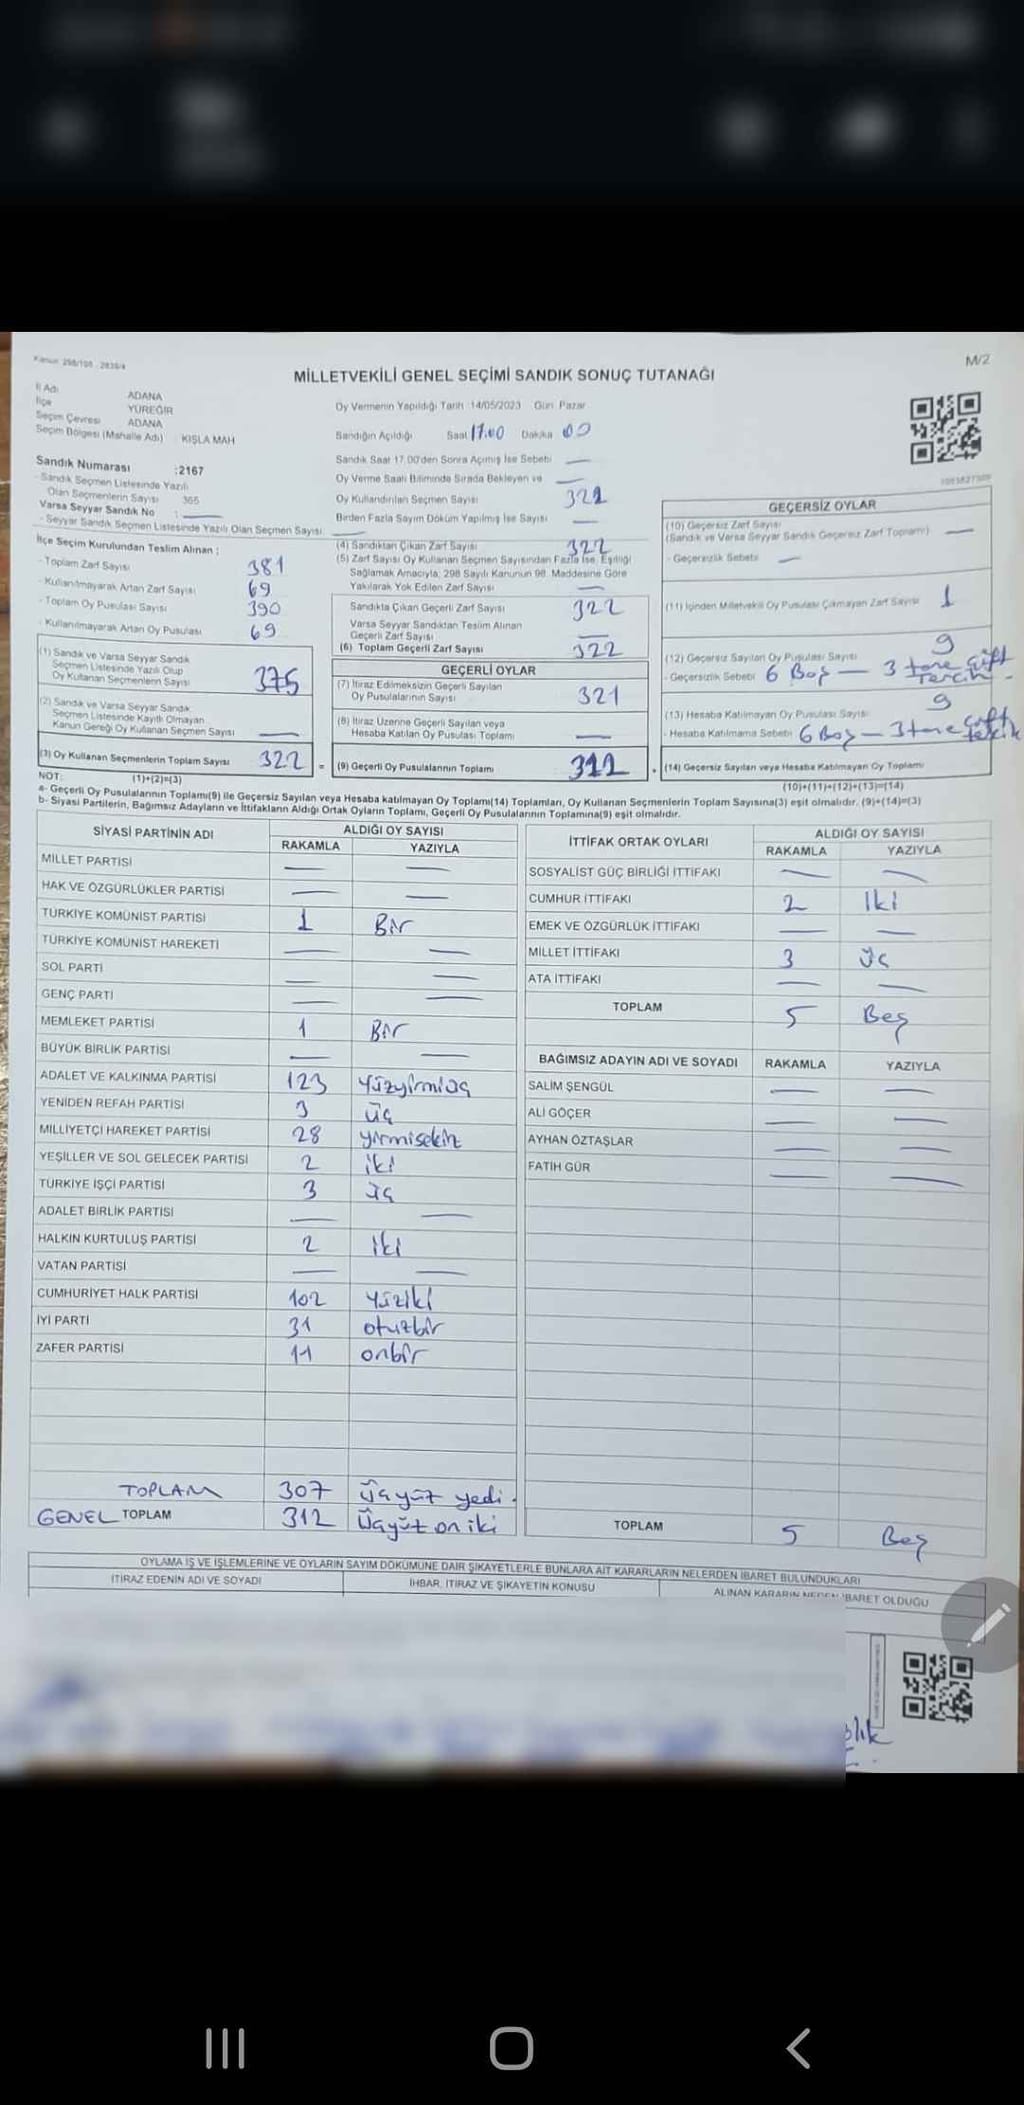 Kanun 298/105 2839/4
M/2
MİLLETVEKİLİ GENEL SEÇİMİ SANDIK SONUÇ TUTANAĞI
İl Adı ADANA
İlçe YÜREĞİR
Seçim Çevresi ADANA
Seçim Bölgesi (Mahalle Adı) : KIŞLA MAH
Sandık Numarası :2167
- Sandık Seçmen Listesinde Yazılı
Olan Seçmenlerin Sayısı 365
Varsa Seyyar Sandık No : —
- Seyyar Sandık Seçmen Listesinde Yazılı Olan Seçmen Sayısı: —
İlçe Seçim Kurulundan Teslim Alınan :
- Toplam Zarf Sayısı 381
- Kullanılmayarak Artan Zarf Sayısı 69
- Toplam Oy Pusulası Sayısı 390
- Kullanılmayarak Artan Oy Pusulası 69
(1) Sandık ve Varsa Seyyar Sandık
Seçmen Listesinde Yazılı Olup
Oy Kullanan Seçmenlerin Sayısı 375
(2) Sandık ve Varsa Seyyar Sandık
Seçmen Listesinde Kayıtlı Olmayan
Kanun Gereği Oy Kullanan Seçmen Sayısı —
(3) Oy Kullanan Seçmenlerin Toplam Sayısı 322 =
Oy Vermenin Yapıldığı Tarih :14/05/2023 Gün: Pazar
Sandığın Açıldığı Saat 17.00 Dakika 00
Sandık Saat 17.00'den Sonra Açılmış İse Sebebi —
Oy Verme Saati Bitiminde Sırada Bekleyen ve —
Oy Kullandırılan Seçmen Sayısı 321
Birden Fazla Sayım Döküm Yapılmış İse Sayısı —
(4) Sandıktan Çıkan Zarf Sayısı 322
(5) Zarf Sayısı Oy Kullanan Seçmen Sayısından Fazla İse, Eşitliği
Sağlamak Amacıyla, 298 Sayılı Kanunun 98. Maddesine Göre
Yakılarak Yok Edilen Zarf Sayısı —
Sandıkta Çıkan Geçerli Zarf Sayısı 322
Varsa Seyyar Sandıktan Teslim Alınan
Geçerli Zarf Sayısı —
(6) Toplam Geçerli Zarf Sayısı 322
GEÇERLİ OYLAR
(7) İtiraz Edilmeksizin Geçerli Sayılan
Oy Pusulalarının Sayısı 321
(8) İtiraz Üzerine Geçerli Sayılan veya
Hesaba Katılan Oy Pusulası Toplamı —
(9) Geçerli Oy Pusulalarının Toplamı 312
GEÇERSİZ OYLAR
(10) Geçersiz Zarf Sayısı
(Sandık ve Varsa Seyyar Sandık Geçersiz Zarf Toplamı) —
- Geçersizlik Sebebi —
(11) İçinden Milletvekili Oy Pusulası Çıkmayan Zarf Sayısı 1
(12) Geçersiz Sayılan Oy Pusulası Sayısı 9
- Geçersizlik Sebebi 6 Boş — 3 tane çift tercih
(13) Hesaba Katılmayan Oy Pusulası Sayısı 9
- Hesaba Katılmama Sebebi 6 Boş — 3 tane çift
(14) Geçersiz Sayılan veya Hesaba Katılmayan Oy Toplamı
(10)+(11)+(12)+(13)=(14)
NOT: (1)+(2)=(3)
a- Geçerli Oy Pusulalarının Toplamı(9) ile Geçersiz Sayılan veya Hesaba katılmayan Oy Toplamı(14) Toplamları, Oy Kullanan Seçmenlerin Toplam Sayısına(3) eşit olmalıdır. (9)+(14)=(3)
b- Siyasi Partilerin, Bağımsız Adayların ve İttifakların Aldığı Ortak Oyların Toplamı, Geçerli Oy Pusulalarının Toplamına(9) eşit olmalıdır.
SİYASİ PARTİNİN ADI ALDIĞI OY SAYISI
RAKAMLA YAZIYLA
MİLLET PARTİSİ — —
HAK VE ÖZGÜRLÜKLER PARTİSİ — —
TÜRKİYE KOMÜNİST PARTİSİ 1 Bir
TÜRKİYE KOMÜNİST HAREKETİ — —
SOL PARTİ — —
GENÇ PARTİ — —
MEMLEKET PARTİSİ 1 Bir
BÜYÜK BİRLİK PARTİSİ — —
ADALET VE KALKINMA PARTİSİ 123 Yüzyirmiüç
YENİDEN REFAH PARTİSİ 3 üç
MİLLİYETÇİ HAREKET PARTİSİ 28 yirmisekiz
YEŞİLLER VE SOL GELECEK PARTİSİ 2 iki
TÜRKİYE İŞÇİ PARTİSİ 3 üç
ADALET BİRLİK PARTİSİ — —
HALKIN KURTULUŞ PARTİSİ 2 iki
VATAN PARTİSİ — —
CUMHURİYET HALK PARTİSİ 102 yüziki
İYİ PARTİ 31 otuzbir
ZAFER PARTİSİ 11 onbir
TOPLAM 307 Üçyüz yedi.
GENEL TOPLAM 312 Üçyüz on iki
İTTİFAK ORTAK OYLARI ALDIĞI OY SAYISI
RAKAMLA YAZIYLA
SOSYALİST GÜÇ BİRLİĞİ İTTİFAKI — —
CUMHUR İTTİFAKI 2 İki
EMEK VE ÖZGÜRLÜK İTTİFAKI — —
MİLLET İTTİFAKI 3 Üç
ATA İTTİFAKI — —
TOPLAM 5 Beş
BAĞIMSIZ ADAYIN ADI VE SOYADI RAKAMLA YAZIYLA
SALİM ŞENGÜL — —
ALİ GÖÇER — —
AYHAN ÖZTAŞLAR — —
FATİH GÜR — —
TOPLAM 5 Beş
OYLAMA İŞ VE İŞLEMLERİNE VE OYLARIN SAYIM DÖKÜMÜNE DAİR ŞİKAYETLERLE BUNLARA AİT KARARLARIN NELERDEN İBARET BULUNDUKLARI
İTİRAZ EDENİN ADI VE SOYADI İHBAR, İTİRAZ VE ŞİKAYETİN KONUSU ALINAN KARARIN NEDEN İBARET OLDUĞU